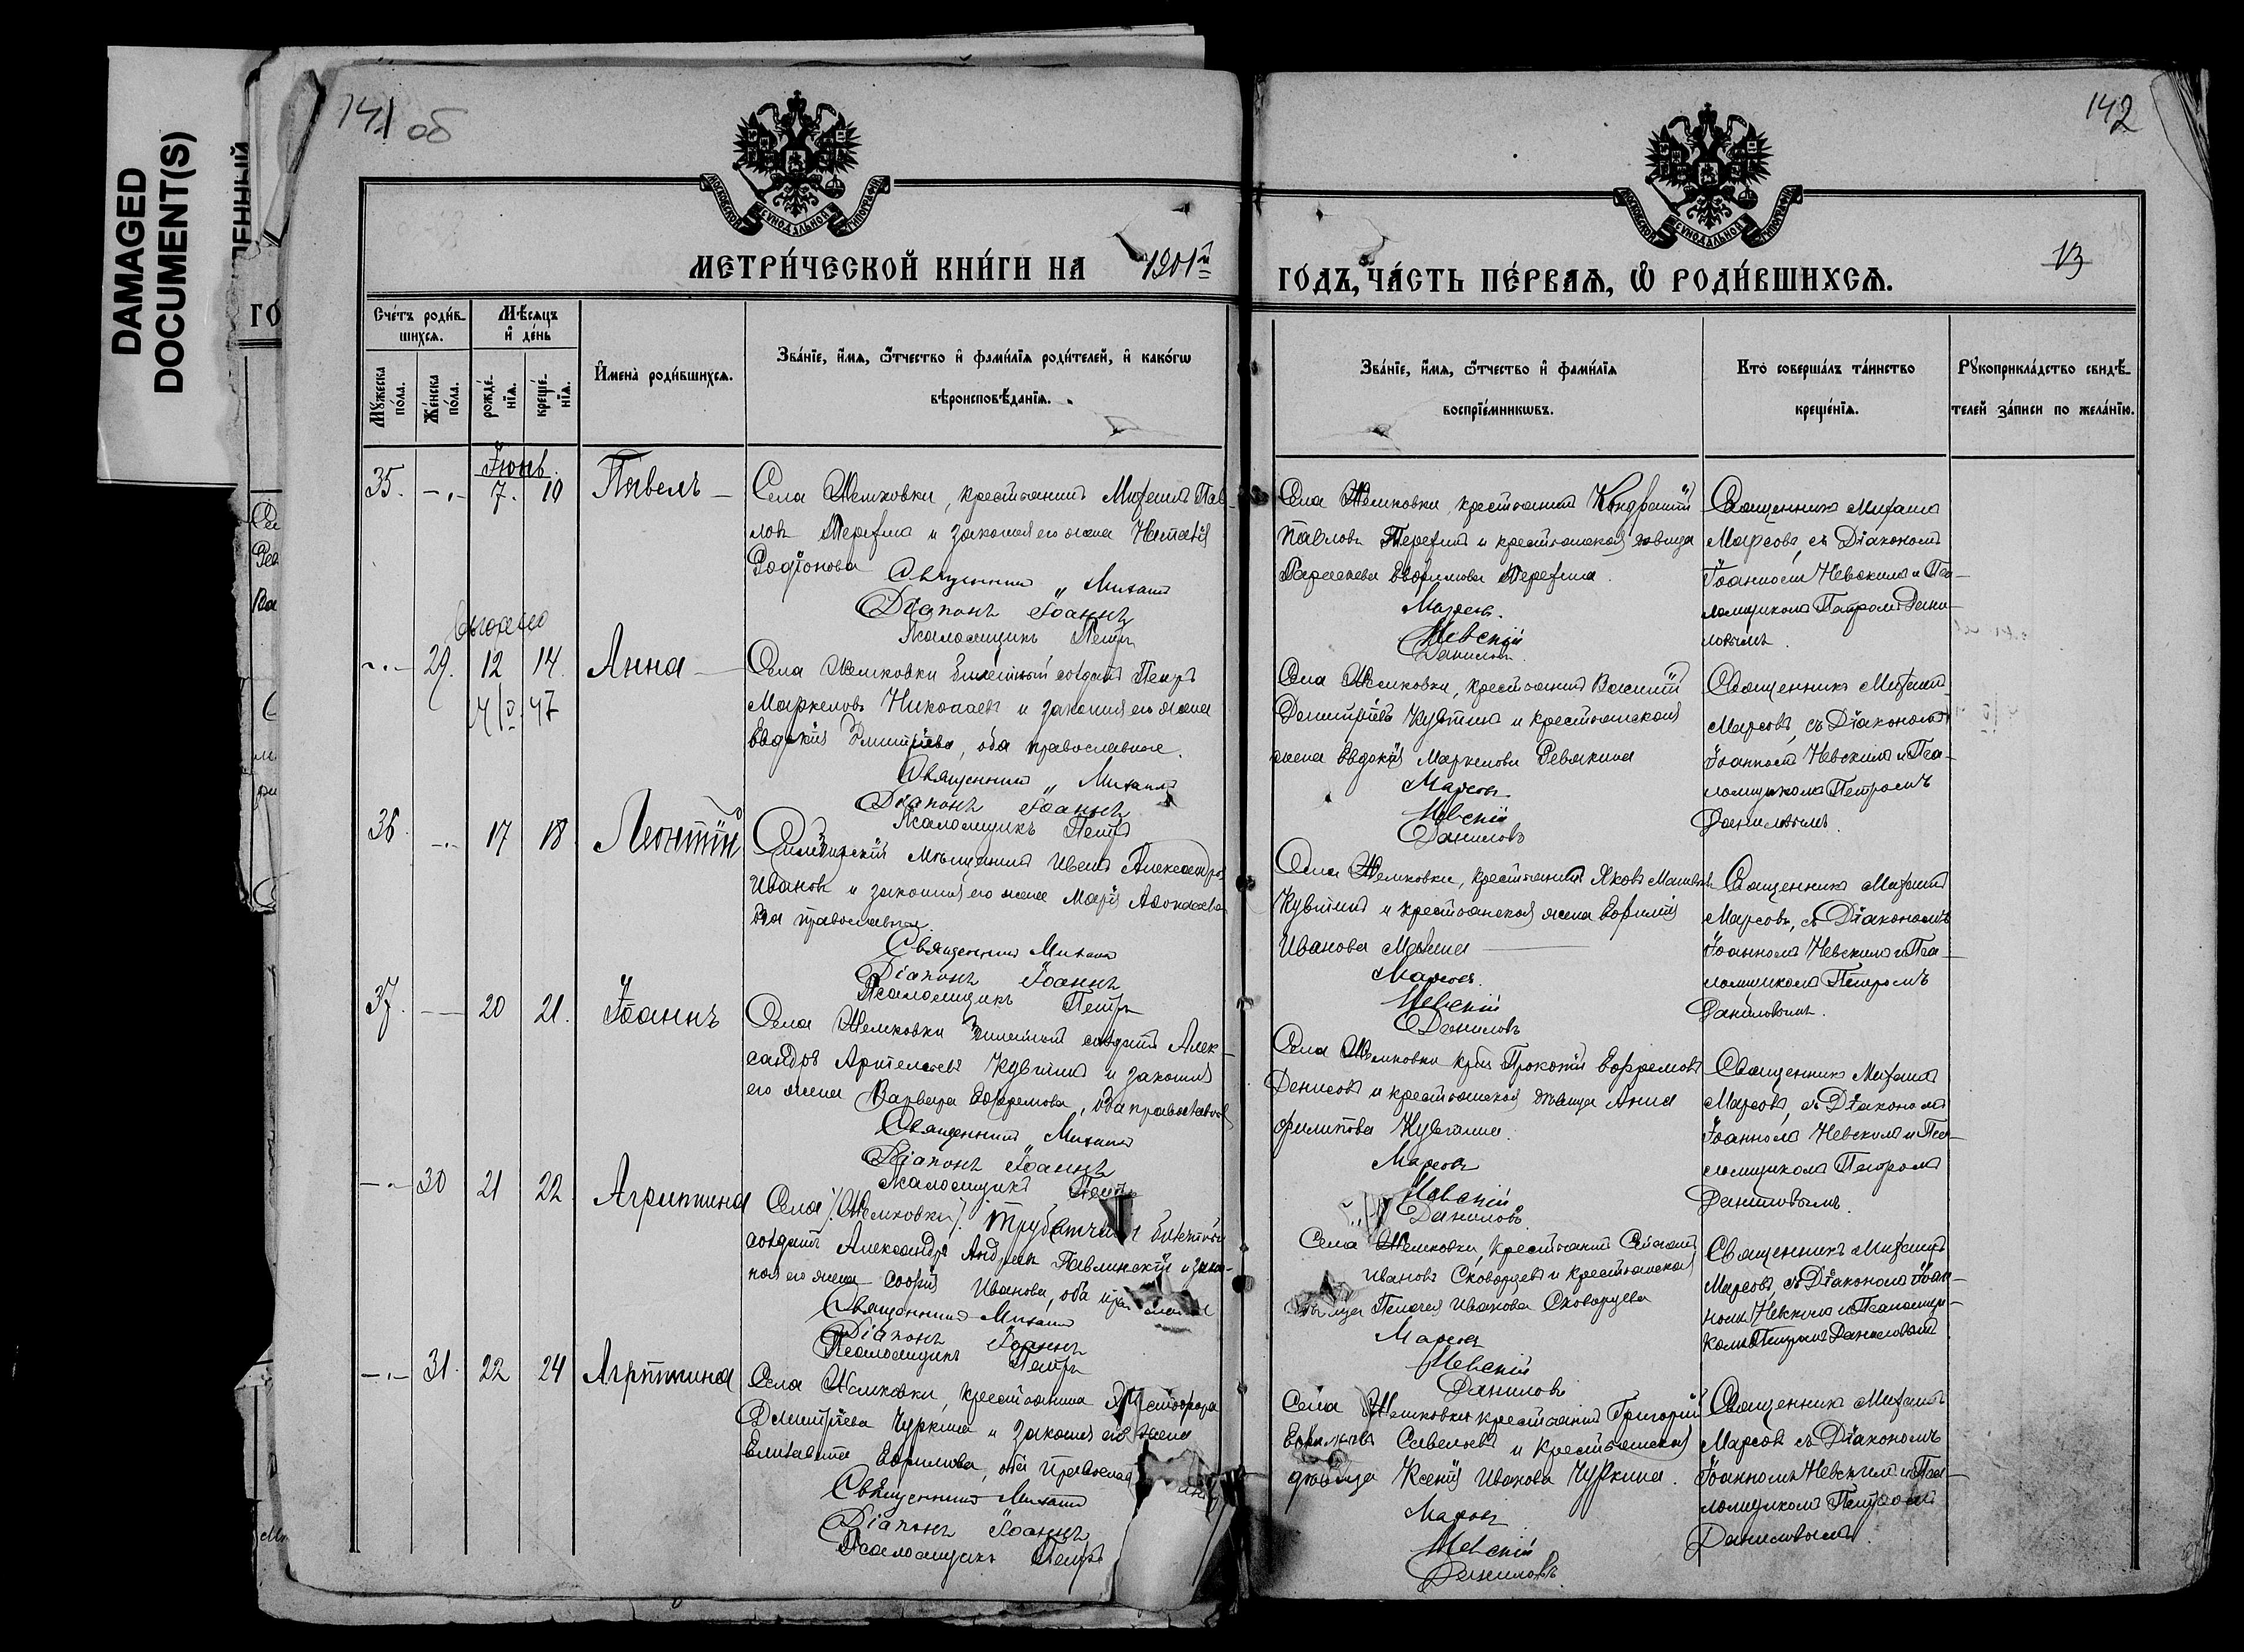 DAMAGED
DOCUMENT(S)
141 об
142
МОСКОВСКОЙ СѴНОДАЛЬНОЙ ТИПОГРАФІИ
МОСКОВСКОЙ СѴНОДАЛЬНОЙ ТИПОГРАФІИ
МЕТРИ́ЧЕСКОЙ КНИ́ГИ НА 1901й
ГО́ДЪ, ЧА́СТЬ ПЕ́РВАѦ, Ѡ҆ РОДИ́ВШИХСѦ.
13
Сче́тъ роди́в-
шихсѧ.
Мѣ́сѧцъ
и҆ де́нь
Мꙋ́жеска по́ла.
Же́нска по́ла.
рожде́-нїѧ.
креще́-нїѧ.
И҆мена̀ роди́вшихсѧ.
Зва́нїе, и҆́мѧ, ѻ҆́тчество и҆ фами́лїѧ роди́телей, и҆ како́гѡ
вѣроисповѣ́данїѧ.
Зва́нїе, и҆́мѧ, ѻ҆́тчество и҆ фами́лїѧ
воспрїе́мникѡвъ.
Кто̀ соверша́лъ та́инство
креще́нїѧ.
Рꙋкоприкла́дство свидѣ́-
телей за́писи по жела́нїю.
Іюнь
35. -"- 7. 10 Павелъ -
Села Жемковки, крестьянинъ Михаилъ Пав-
ловъ Терехинъ и законная его жена Наталія
Родіонова
Священникъ Михаилъ Марсовъ
Діаконъ Іоаннъ Невскій
Псаломщикъ Петръ Даниловъ
Села Жемковки, крестьянинъ Кондратій
Павловъ Терехинъ и крестьянская дѣвица
Параскева Евфимова Терехина.
Священникъ Михаилъ
Марсовъ, съ Діакономъ
Іоанномъ Невскимъ и Пса-
ломщикомъ Петромъ Дани-
ловымъ.
выдано
-"- 29. 12 14. Анна -
Села Жемковки билетный солдатъ Петръ
Маркеловъ Николаевъ и законная его жена
Евдокія Дмитріева, оба православные.
Священникъ Михаилъ Марсовъ
Діаконъ Іоаннъ Невскій
Псаломщикъ Петръ Даниловъ
Села Жемковки, крестьянинъ Василій
Димитріевъ Кувшинъ и крестьянская
жена Евдокія Маркелова Ревякина
Священникъ Михаилъ
Марсовъ, съ Діакономъ
Іоанномъ Невскимъ и Пса-
ломщикомъ Петромъ
Даниловымъ.
36. -"- 17 18. Леонтій
мѣщанинъ Иванъ Александровъ
Ивановъ и законная его жена Марія
оба православные.
Священникъ Михаилъ Марсовъ
Діаконъ Іоаннъ Невскій
Псаломщикъ Петръ Даниловъ
Села Жемковки, крестьянинъ Яковъ
и крестьянская жена
Иванова
Священникъ Михаилъ
Марсовъ, съ Діакономъ
Іоанномъ Невскимъ и Пса-
ломщикомъ Петромъ
Даниловымъ.
37. - 20 21. Іоаннъ
Села Жемковки билетный солдатъ Алек-
сандръ и законная
его жена Варвара Ефремова, оба православные
Священникъ Михаилъ Марсовъ
Діаконъ Іоаннъ Невскій
Псаломщикъ Петръ Даниловъ
Села Жемковки Прокопій Ефремовъ
Денисовъ и крестьянская дѣвица Анна
Филипова
Священникъ Михаилъ
Марсовъ, съ Діакономъ
Іоанномъ Невскимъ и Пса-
ломщикомъ Петромъ
Даниловымъ.
-"- 30 21 22. Агрипина
Села Жемковки билетный
солдатъ Александръ Андреевъ Павлинскій и закон-
ная его жена Софія Иванова, оба
Священникъ Михаилъ Марсовъ
Діаконъ Іоаннъ Невскій
Псаломщикъ Петръ Даниловъ
Села Жемковки, крестьянинъ
Ивановъ Скворцевъ и крестьянская
дѣвица Пелагея Иванова Скворцева
Священникъ Михаилъ
Марсовъ, съ Діакономъ Іоан-
номъ Невскимъ и Псаломщи-
комъ Петромъ Даниловымъ
-"- 31. 22 24 Агрипина
Села Жемковки, крестьянина Христофора
Димитріева Чуркина и законная его жена
Елизавета Ефимова, оба
Священникъ Михаилъ Марсовъ
Діаконъ Іоаннъ Невскій
Псаломщикъ Петръ Даниловъ
Села Жемковки крестьянинъ Григорій
Савельевъ и крестьянская
дѣвица Ксенія Иванова Чуркина.
Священникъ Михаилъ
Марсовъ съ Діакономъ
Іоанномъ Невскимъ и Пса-
ломщикомъ Петромъ
Даниловымъ.